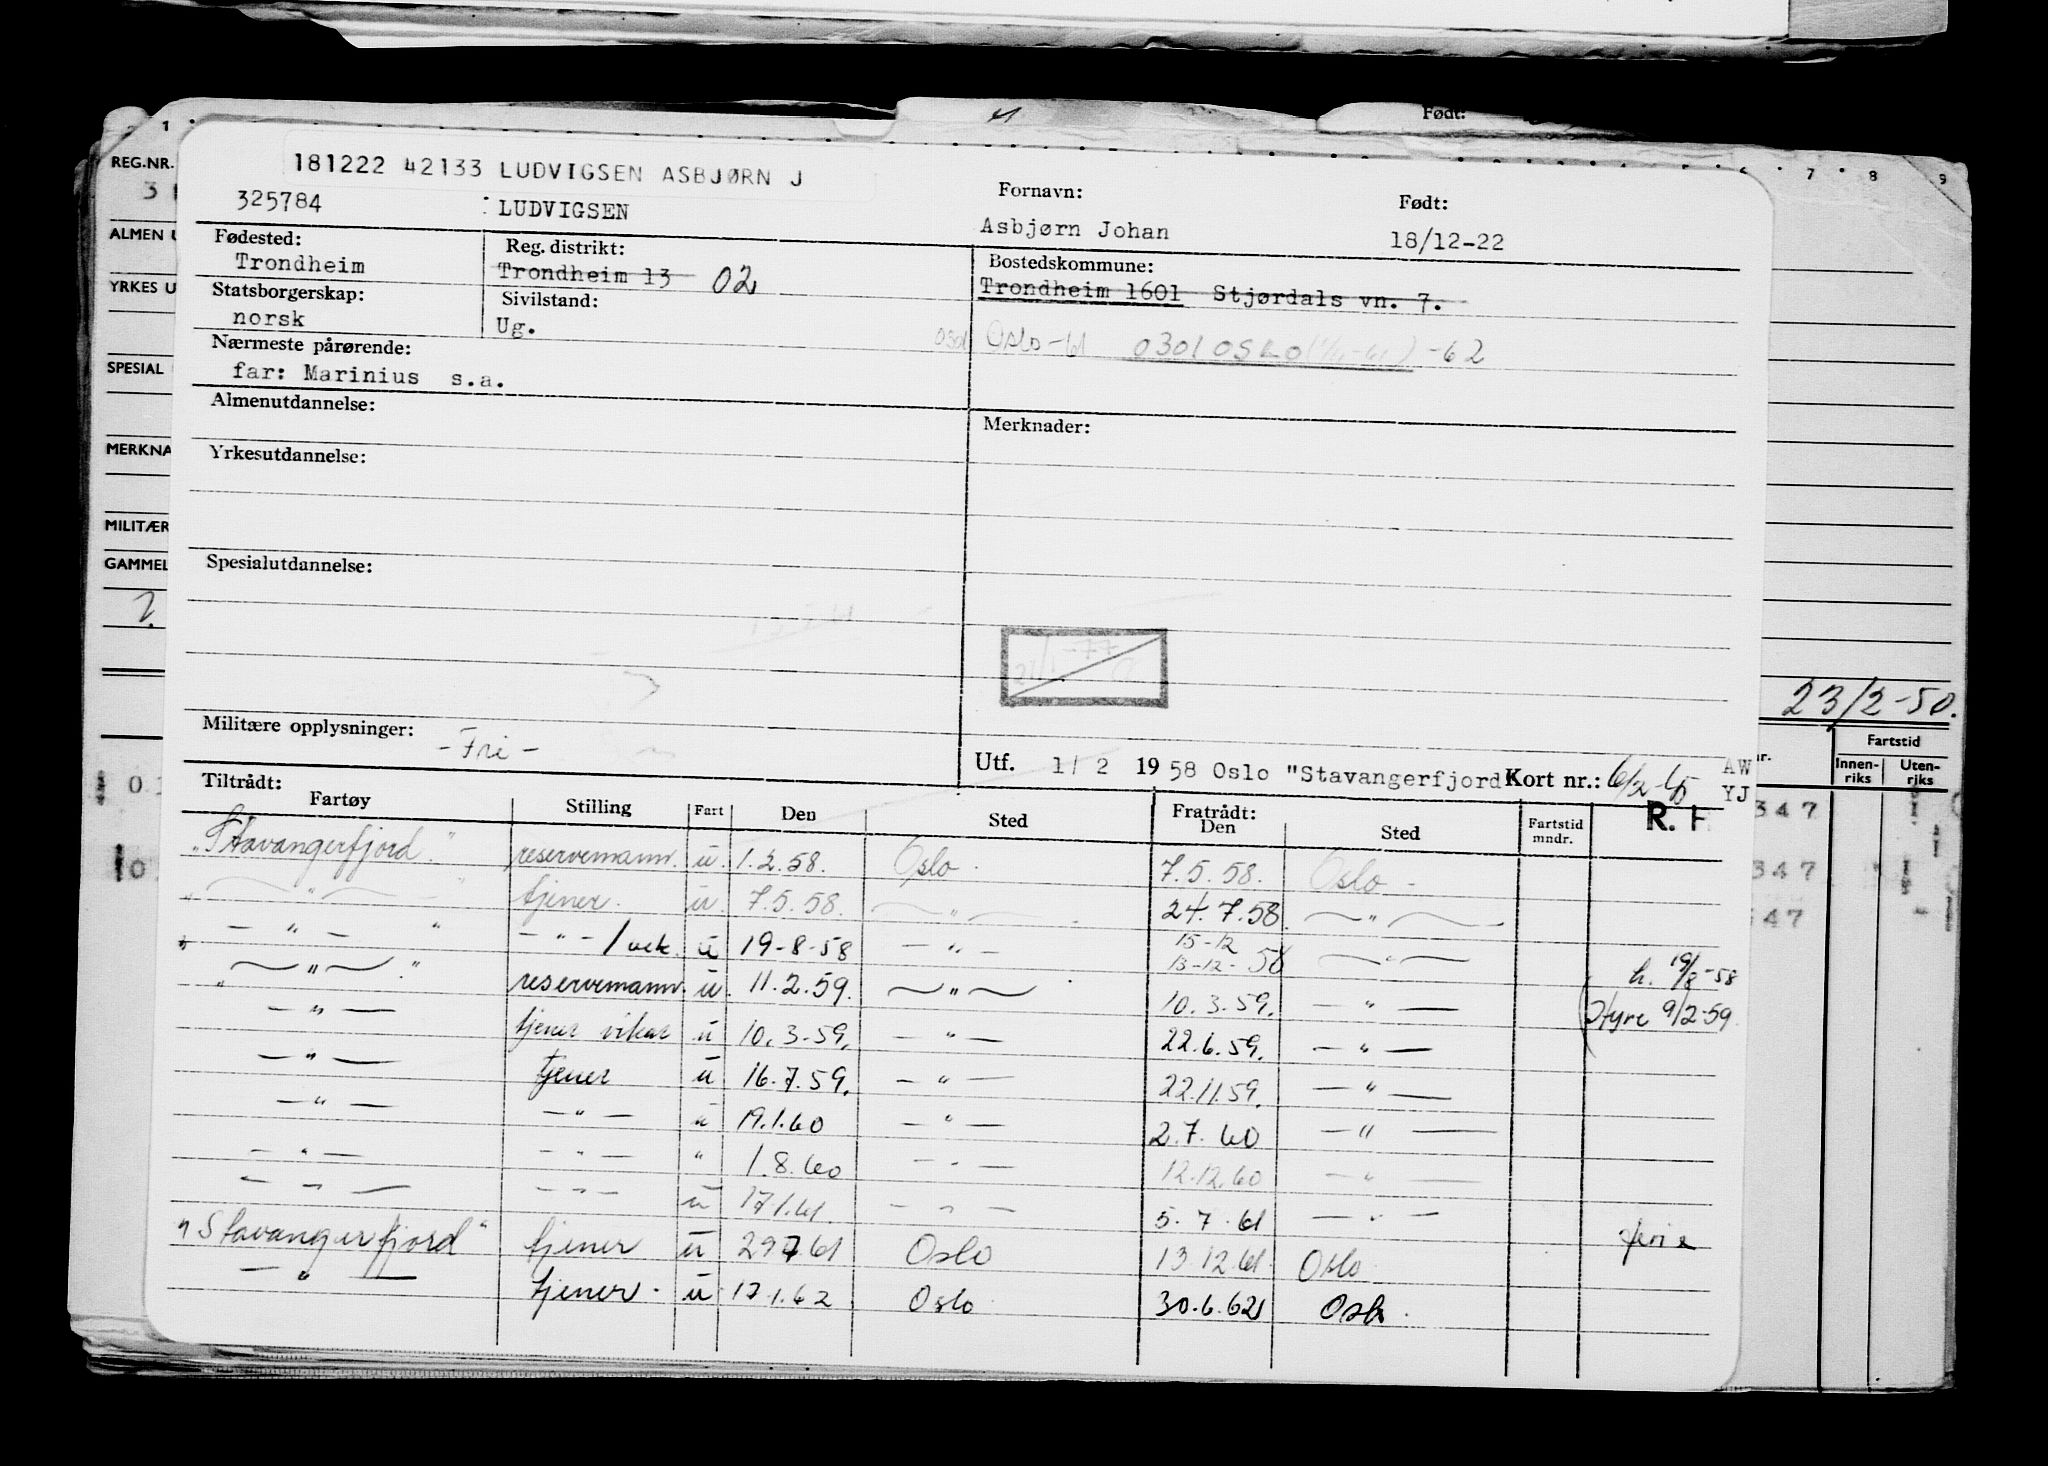 Født:
1
7 8 9
REG.NR.
181222 42133 LUDVIGSEN ASBJØRN J
325784 LUDVIGSEN
Fornavn:
Asbjørn Johan
Født:
18/12-22
ALMEN U
Fødested:
Trondheim
Reg. distrikt:
Trondheim 13 02
Bostedskommune:
Trondheim 1601 Stjørdals vn. 7.
YRKES U
Statsborgerskap:
norsk
Sivilstand:
Ug.
0301 Oslo-61 0301 OSLO -62
Nærmeste pårørende:
far: Marinius s.a.
SPESIAL
Almenutdannelse:
Merknader:
MERKNA
Yrkesutdannelse:
MILITÆR
GAMMEL
Spesialutdannelse:
?
23/2-50.
Militære opplysninger:
-Fri-
Utf. 1/2 1958 Oslo "Stavangerfjord Kort nr.: 6/2-65 AW
YJ
R. H
Fartstid
Innen-riks
Uten-riks
Tiltrådt:
Fartøy Stilling Fart Den Sted Fratrådt: Den Sted Fartstid mndr.
"Stavangerfjord" reservemann. u. 1.2.58. Oslo. 7.5.58. Oslo -
— " — tjener. u. 7.5.58. — " — 24.7.58. — " —
— " — — " — / vik. u 19-8-58 — " — 15-12 13-12-58 — " — h. 19/8-58
— " — reservemann. u. 11.2.59. — " — 10.3.59. — " — Hyre 9/2-59.
— " — tjener vikar u 10.3-59. — " — 22.6.59. — " —
— " — tjener u 16.7.59. — " — 22.11.59. — " —
— " — — " — " 19.1.60 — " — 2.7.60 — " —
— " — — " — " 1.8.60 — " — 12.12.60 — " —
— " — — " — u 17.1.61. — " — 5.7.61 — " — ferie
"Stavangerfjord" tjener u 29.7.61 Oslo 13.12.61. Oslo
— " — tjener. u 17.1.62 Oslo 30.6.62 Oslo.
347
347
347